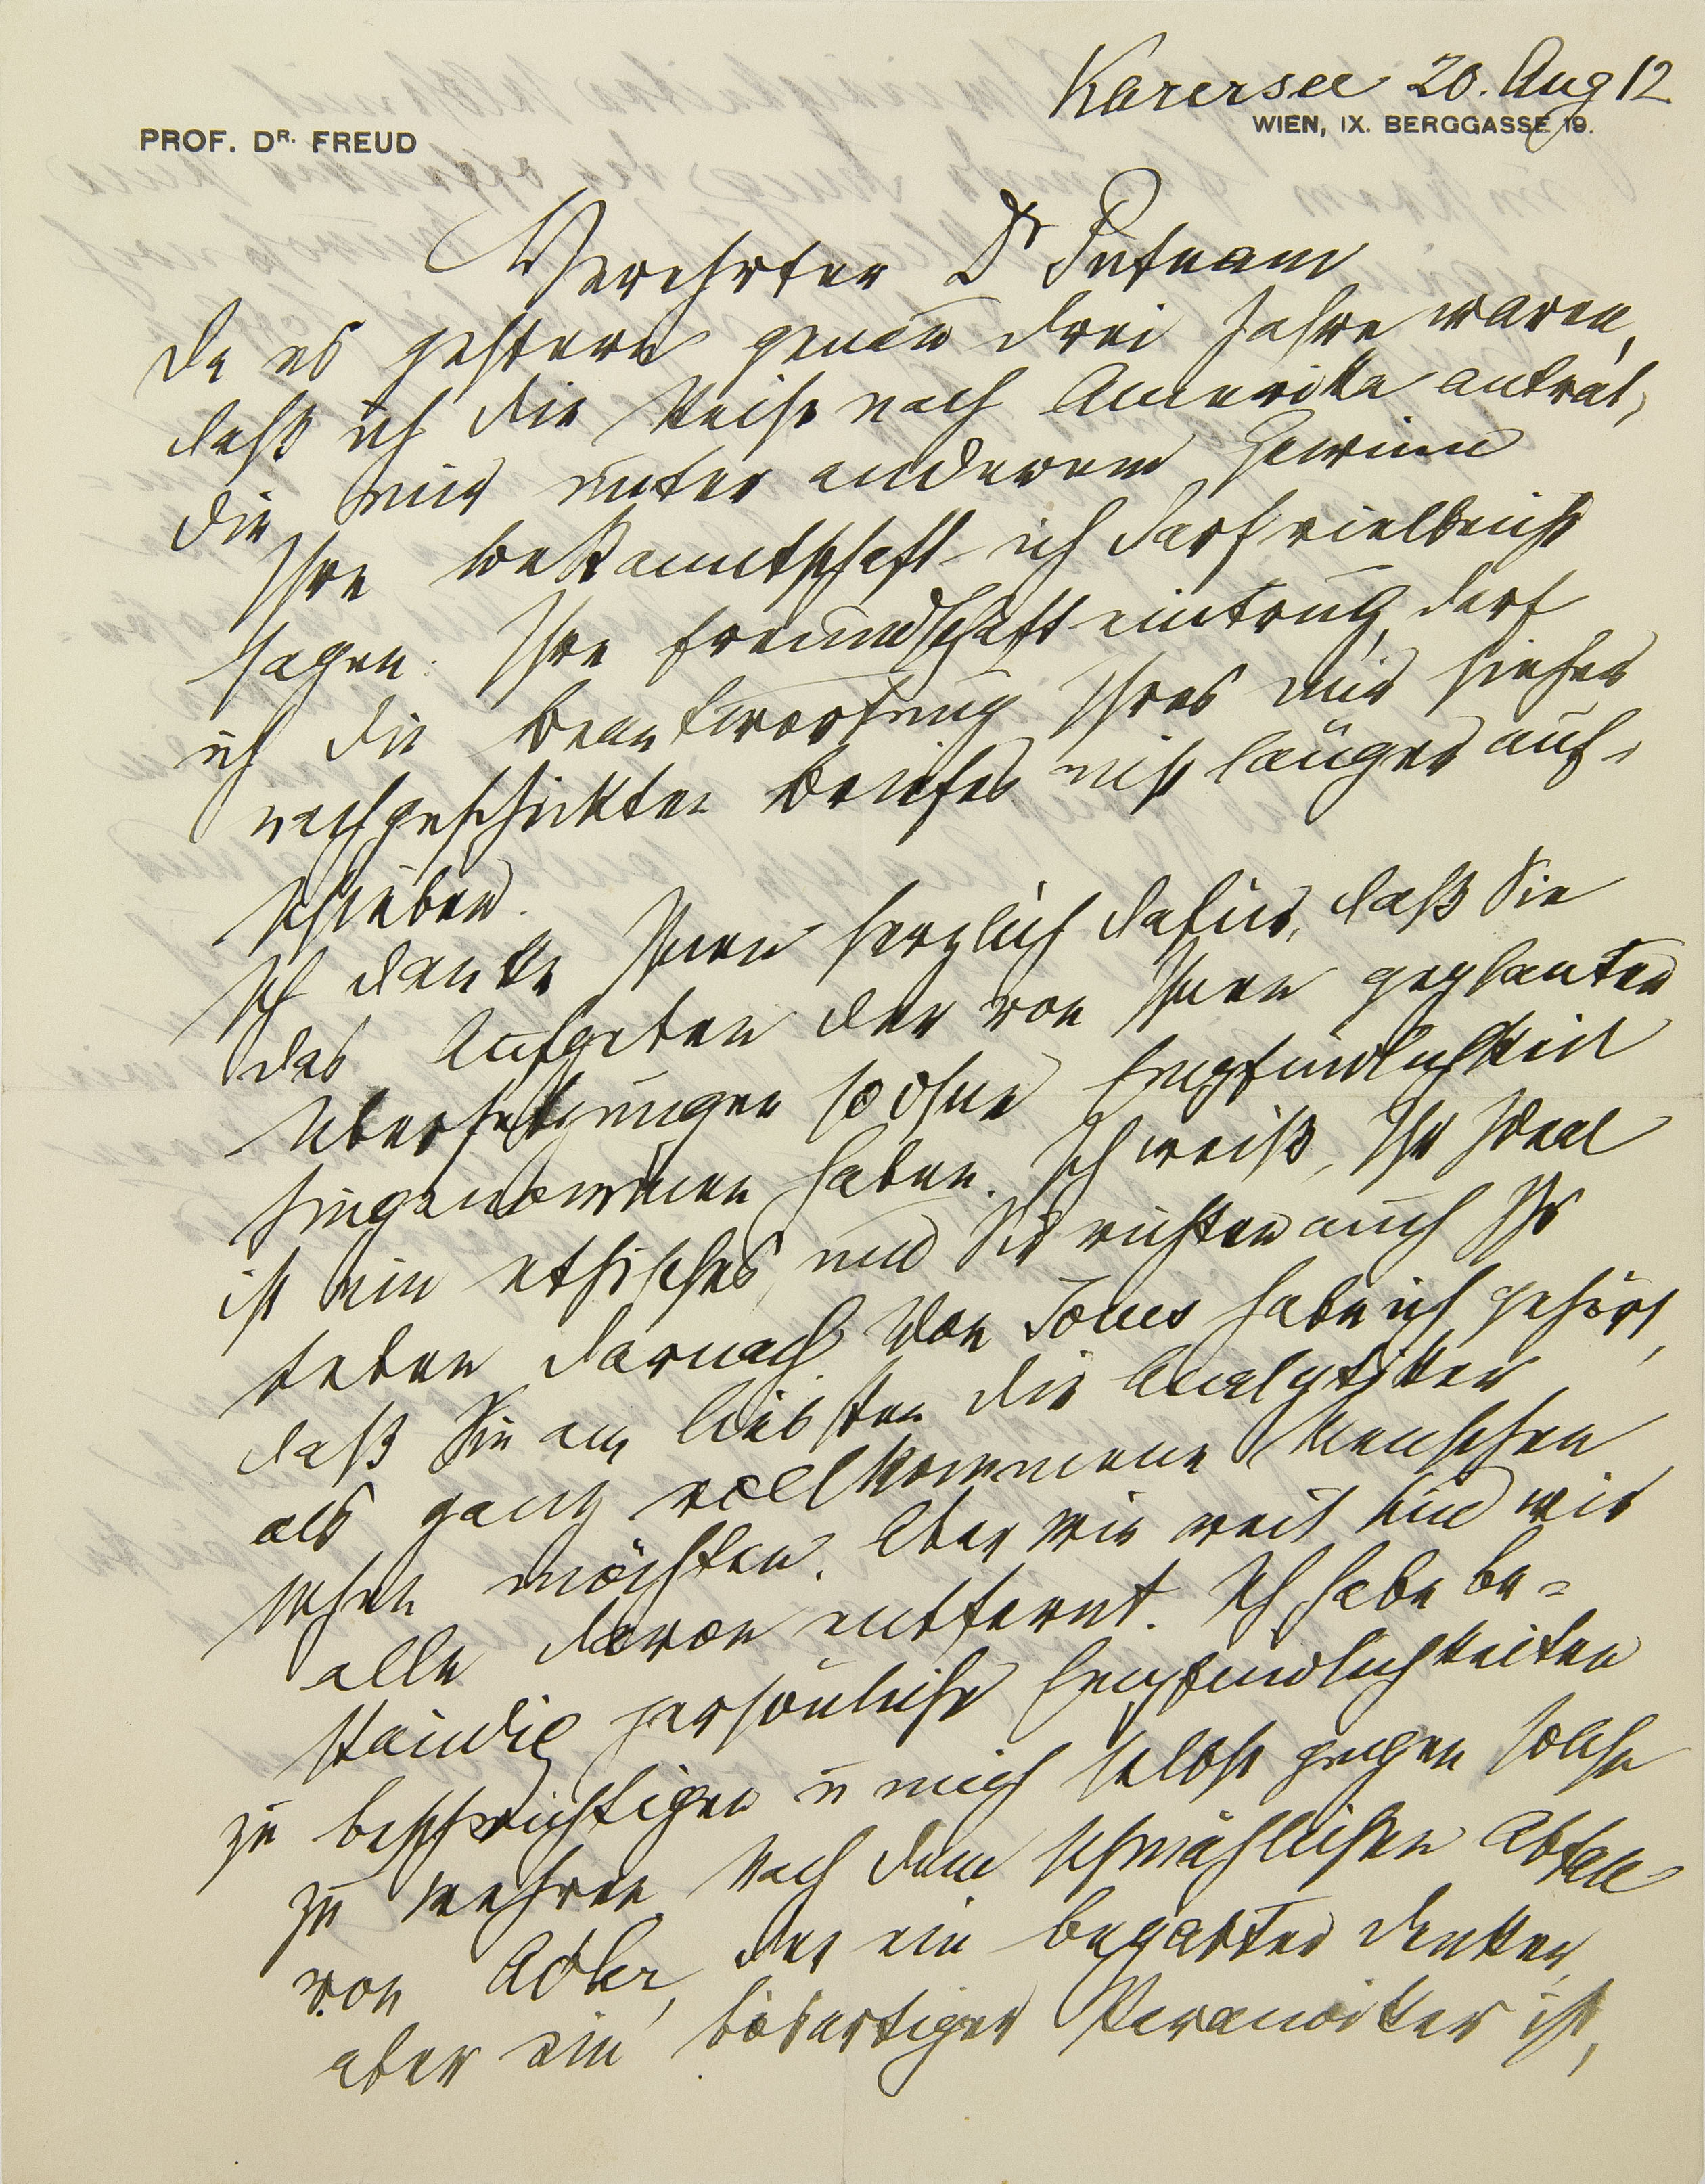 Karersee 20. Aug 12
PROF. DR. FREUD
WIEN, IX. BERGGASSE 19.
Verehrter Dr Putnam
Da es gestern genau drei Jahre waren,
daß ich die Reise nach Amerika antrat,
die mir unter anderem Gewinn
Ihre Bekanntschaft – ich darf vielleicht
sagen: Ihre Freundschaft eintrug, darf
ich die Beantwortung Ihres mir hieher
nachgeschickten Briefes nicht länger auf-
schieben.
Ich danke Ihnen herzlich dafür, daß Sie
das Aufgeben der von Ihnen geplanten
Übersetzungen so ohne Empfindlichkeit
hingenommen haben. Ich weiß, Ihr Ideal
ist ein ethisches und Sie richten auch Ihr
Leben darnach. Von Jones habe ich gehört,
daß Sie am liebsten die Analytiker
als ganz vollkommene Menschen
sehen möchten. Aber wie weit sind wir
alle davon entfernt. Ich habe be-
ständig persönliche Empfindlichkeiten
zu beschwichtigen u mich selbst gegen solche
zu wehren. Nach dem schmählichen Abfall
von Adler, der ein begabter Denker,
aber ein bösartiger Paranoiker ist,